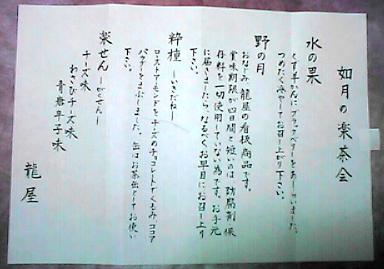 如月の楽茶会
水の果
くず羊かんに、ブラックペッパーをあしらいました。
つめたく冷やしてお召し上り下さい。
野の月
おなじみ龍屋の看板商品です。
賞味期限が四日間と短いのは、防腐剤、保
存料を一切使用していない為です。お手元
に届きましたら、なるべくお早目にお召し上り
下さい。
粋種 ―いきだね―
ローストアーモンドをチーズのチョコレートでくるみ、ココア
パウダーをまぶしました。缶はお茶缶としてお使い
下さい。
楽せん ―らくせん―
チーズ味
わさびチーズ味
青唐辛子味
龍屋